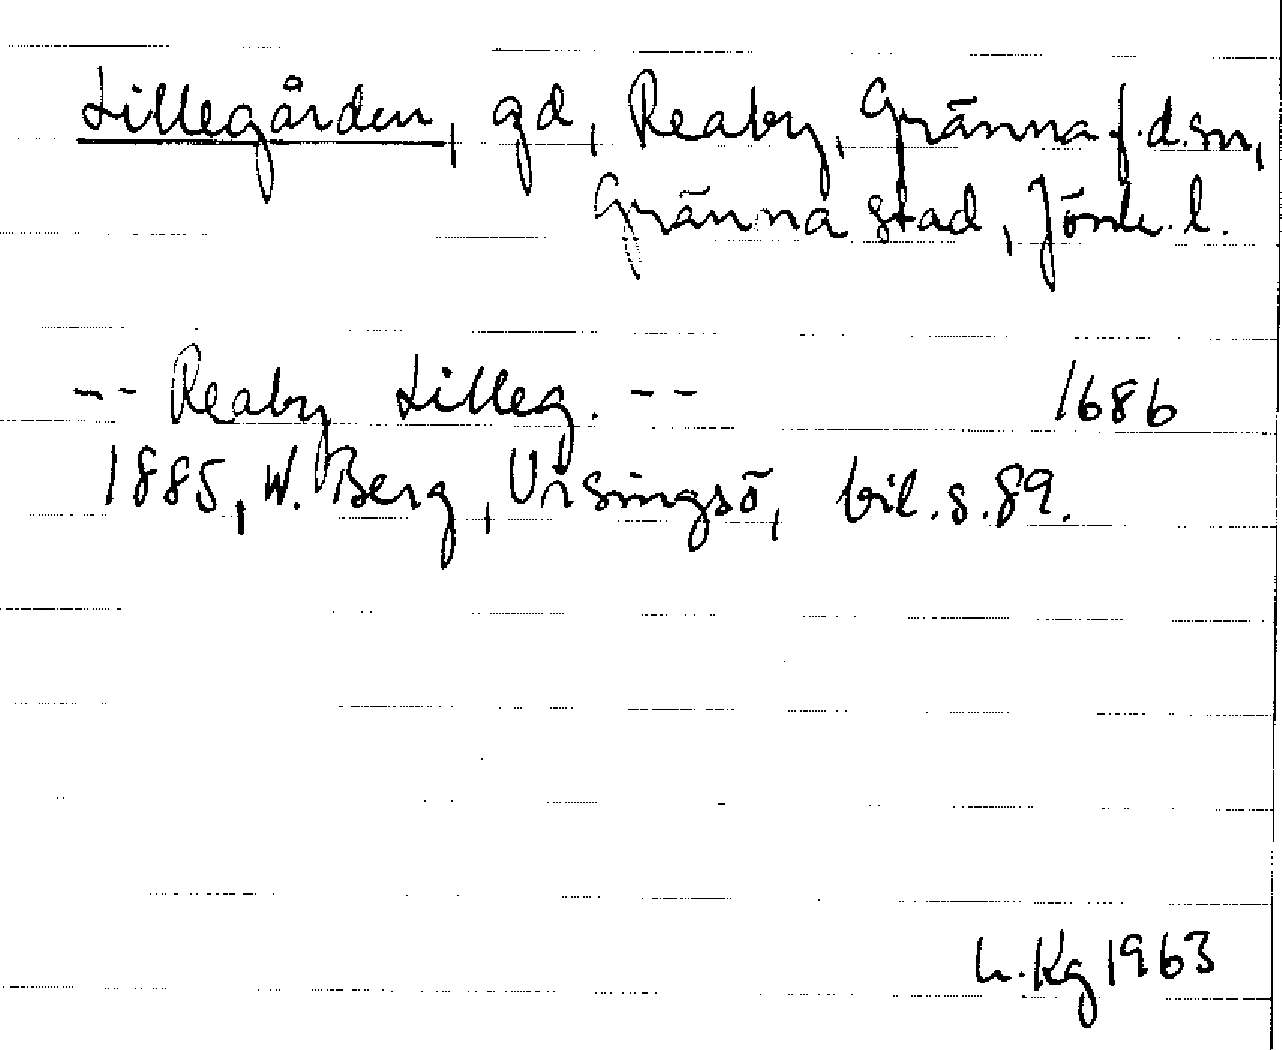 Lillegården, gd, Reaby, Gränna f.d. sn,
Gränna stad, Jönk. l.
-- Reaby Lilleg. -- 1686
1885, W. Berg, Visingsö, bil. s. 89.
h. Kg 1963